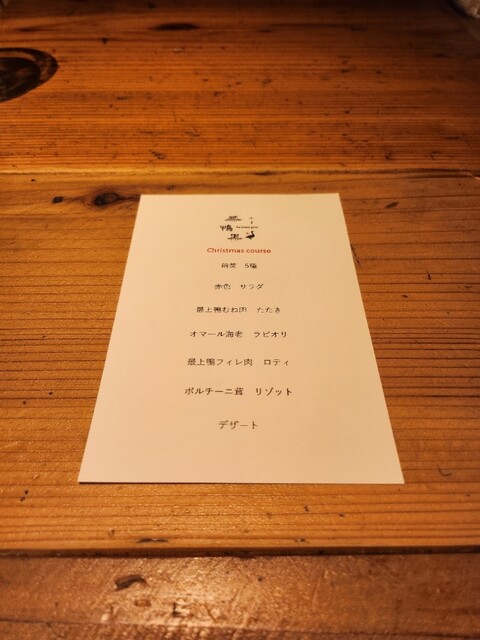 鴨
黒
Christmas course
前菜 5種
赤色 サラダ
最上鴨むね肉 たたき
オマール海老 ラビオリ
最上鴨フィレ肉 ロティ
ポルチーニ茸 リゾット
デザート